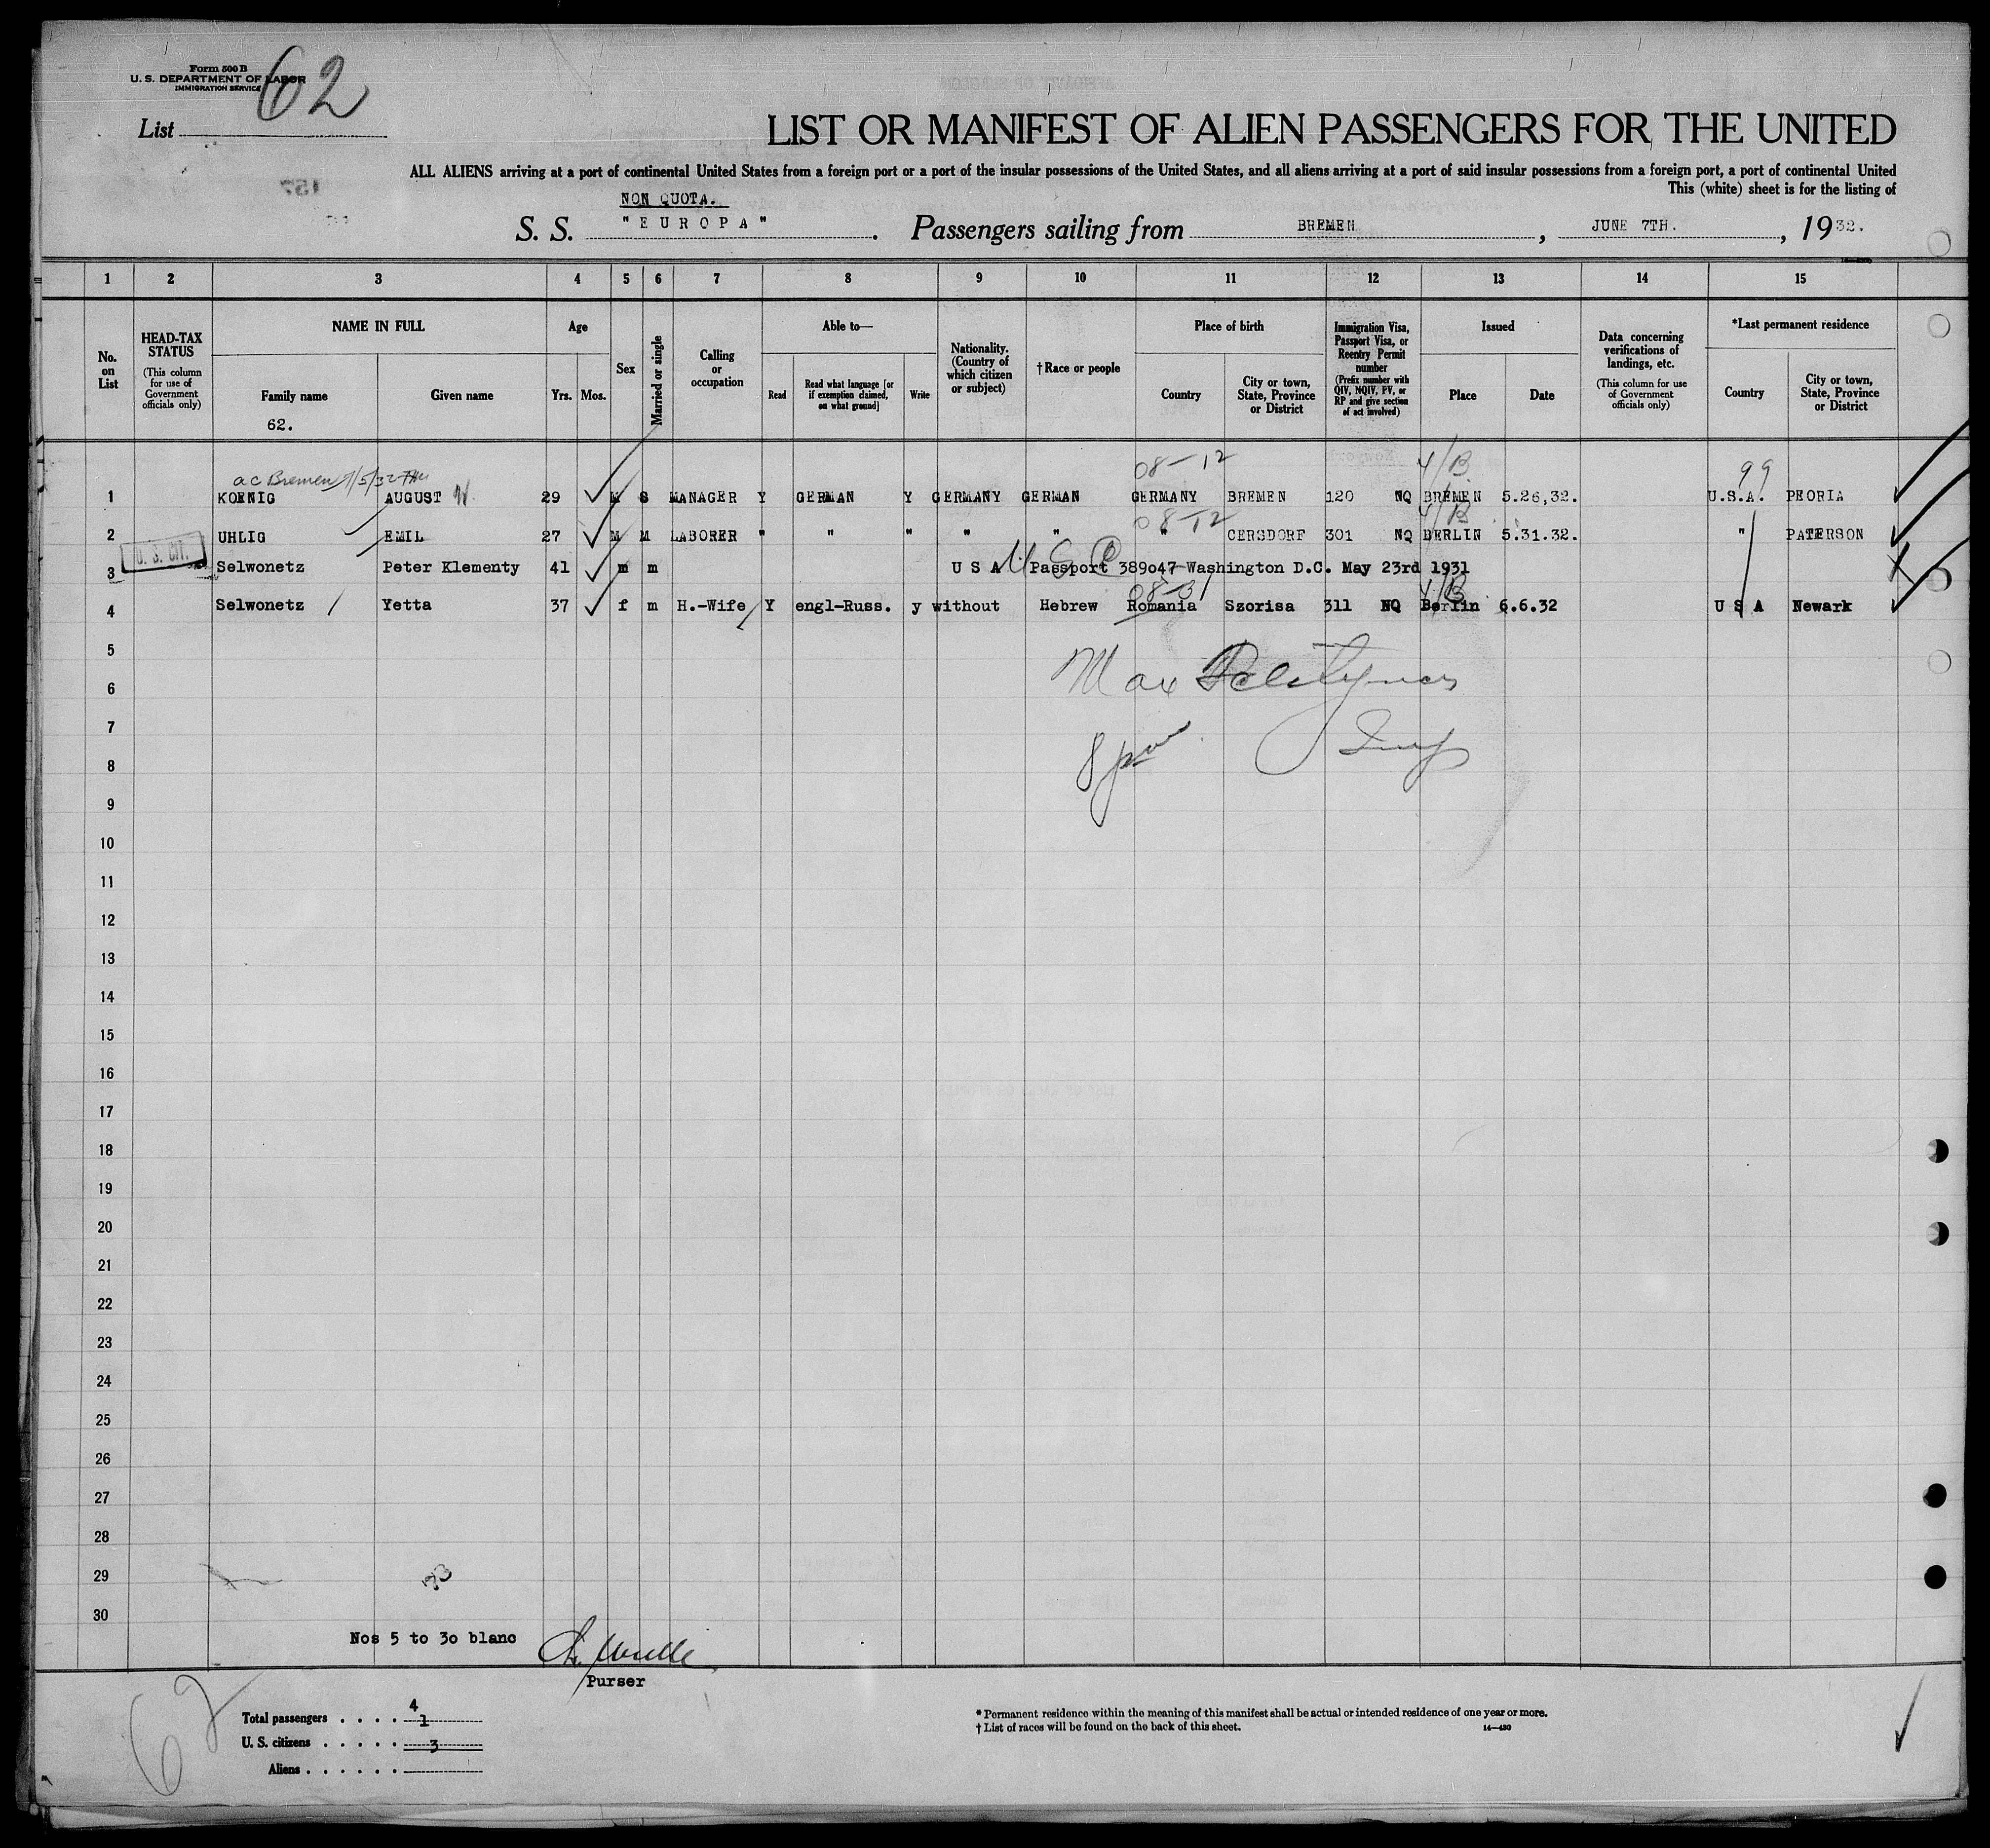 Form 500 B
U. S. DEPARTMENT OF LABOR
IMMIGRATION SERVICE
62
List
LIST OR MANIFEST OF ALIEN PASSENGERS FOR THE UNITED
ALL ALIENS arriving at a port of continental United States from a foreign port or a port of the insular possessions of the United States, and all aliens arriving at a port of said insular possessions from a foreign port, a port of continental United
This (white) sheet is for the listing of
157
NON QUOTA.
S. S. "EUROPA". Passengers sailing from BREMEN, JUNE 7TH., 1932.
1 2 3 4 5 6 7 8 9 10 11 12 13 14 15
No. on List
HEAD-TAX STATUS
(This column for use of Government officials only)
NAME IN FULL
Family name
Given name
62.
Age
Yrs. Mos.
Sex
Married or single
Calling or occupation
Able to—
Read
Read what language [or if exemption claimed, on what ground]
Write
Nationality. (Country of which citizen or subject)
†Race or people
Place of birth
Country
City or town, State, Province or District
Immigration Visa, Passport Visa, or Reentry Permit number
(Prefix number with QIV, NQIV, PV, or RP and give section of act involved)
Issued
Place
Date
Data concerning verifications of landings, etc.
(This column for use of Government officials only)
*Last permanent residence
Country
City or town, State, Province or District
ac Bremen 7/5/32 08-12 4/B 99
1 KOENIG AUGUST W. 29 M S MANAGER Y GERMAN Y GERMANY GERMAN GERMANY BREMEN 120 NQ BREMEN 5.26,32. U.S.A. PEORIA
08-12 4/B
2 UHLIG EMIL 27 M M LABORER " " " " " " CERSDORF 301 NQ BERLIN 5.31.32. " PATERSON
U. S. CIT.
3 Selwonetz Peter Klementy 41 m m U S A U S C Passport 389047 Washington D.C. May 23rd 1931
08-31 4/B
4 Selwonetz Yetta 37 f m H.-Wife Y engl-Russ. y without Hebrew Romania Szorisa 311 NQ Berlin 6.6.32 U S A Newark
5
6 Max
7
8 8 pm Insp
9
10
11
12
13
14
15
16
17
18
19
20
21
22
23
24
25
26
27
28
29
30
Nos 5 to 30 blanc
Purser
62
Total passengers . . . . 4
1
U. S. citizens . . . . . 3
Aliens . . . . . .
* Permanent residence within the meaning of this manifest shall be actual or intended residence of one year or more.
† List of races will be found on the back of this sheet.
14—430